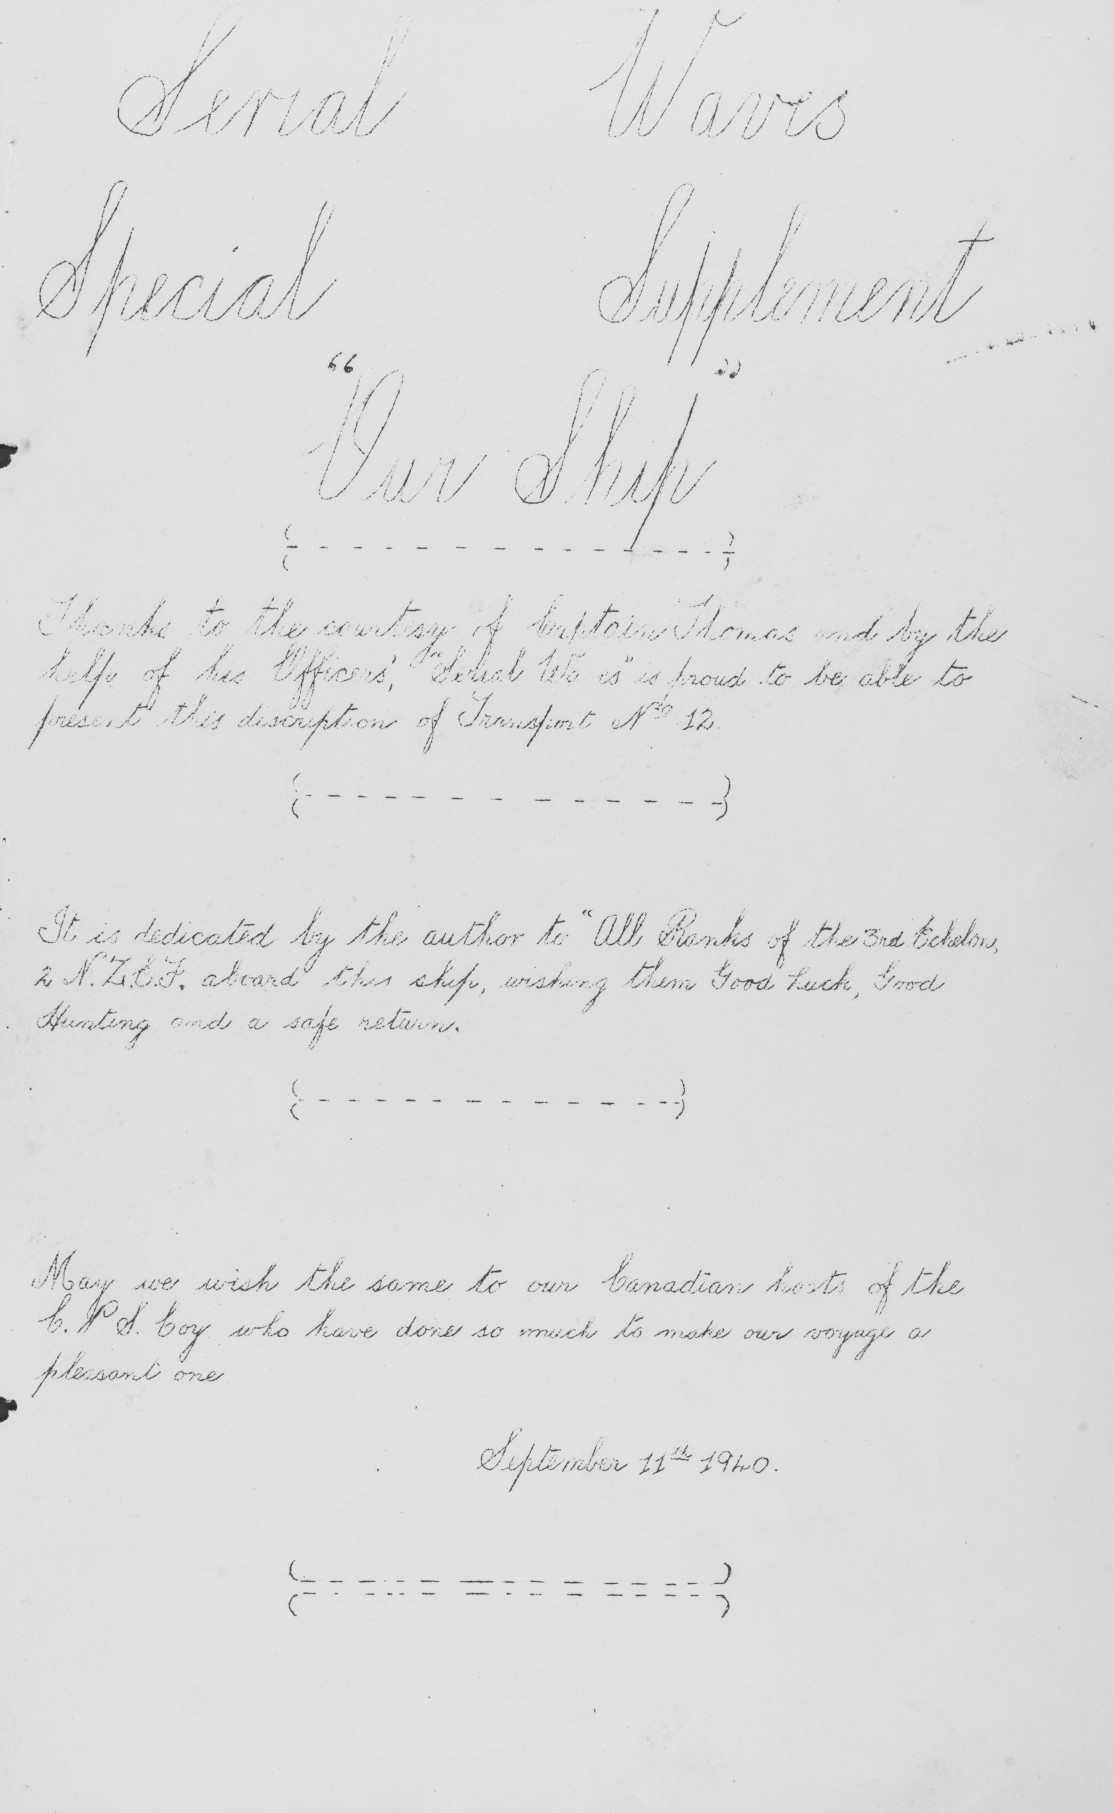 Serial Waves
Special Supplement
"Our Ship"
Thanks to the courtesy of Captain Thomas and by the
help of his Officers', "Serial Waves" is proud to be able to
present this discription of Transport No 12.
It is dedicated by the author to "All Ranks of the 3rd Echelon,
2 N.Z.E.F. aboard this ship, wishing them Good Luck, Good
Hunting and a safe return.
May we wish the same to our Canadian hosts of the
C.P.S. Coy who have done so much to make our voyage a
pleasant one
September 11th 1940.